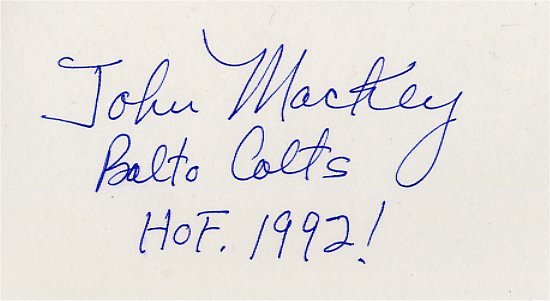 John Mackey
Balto Colts
HOF. 1992!